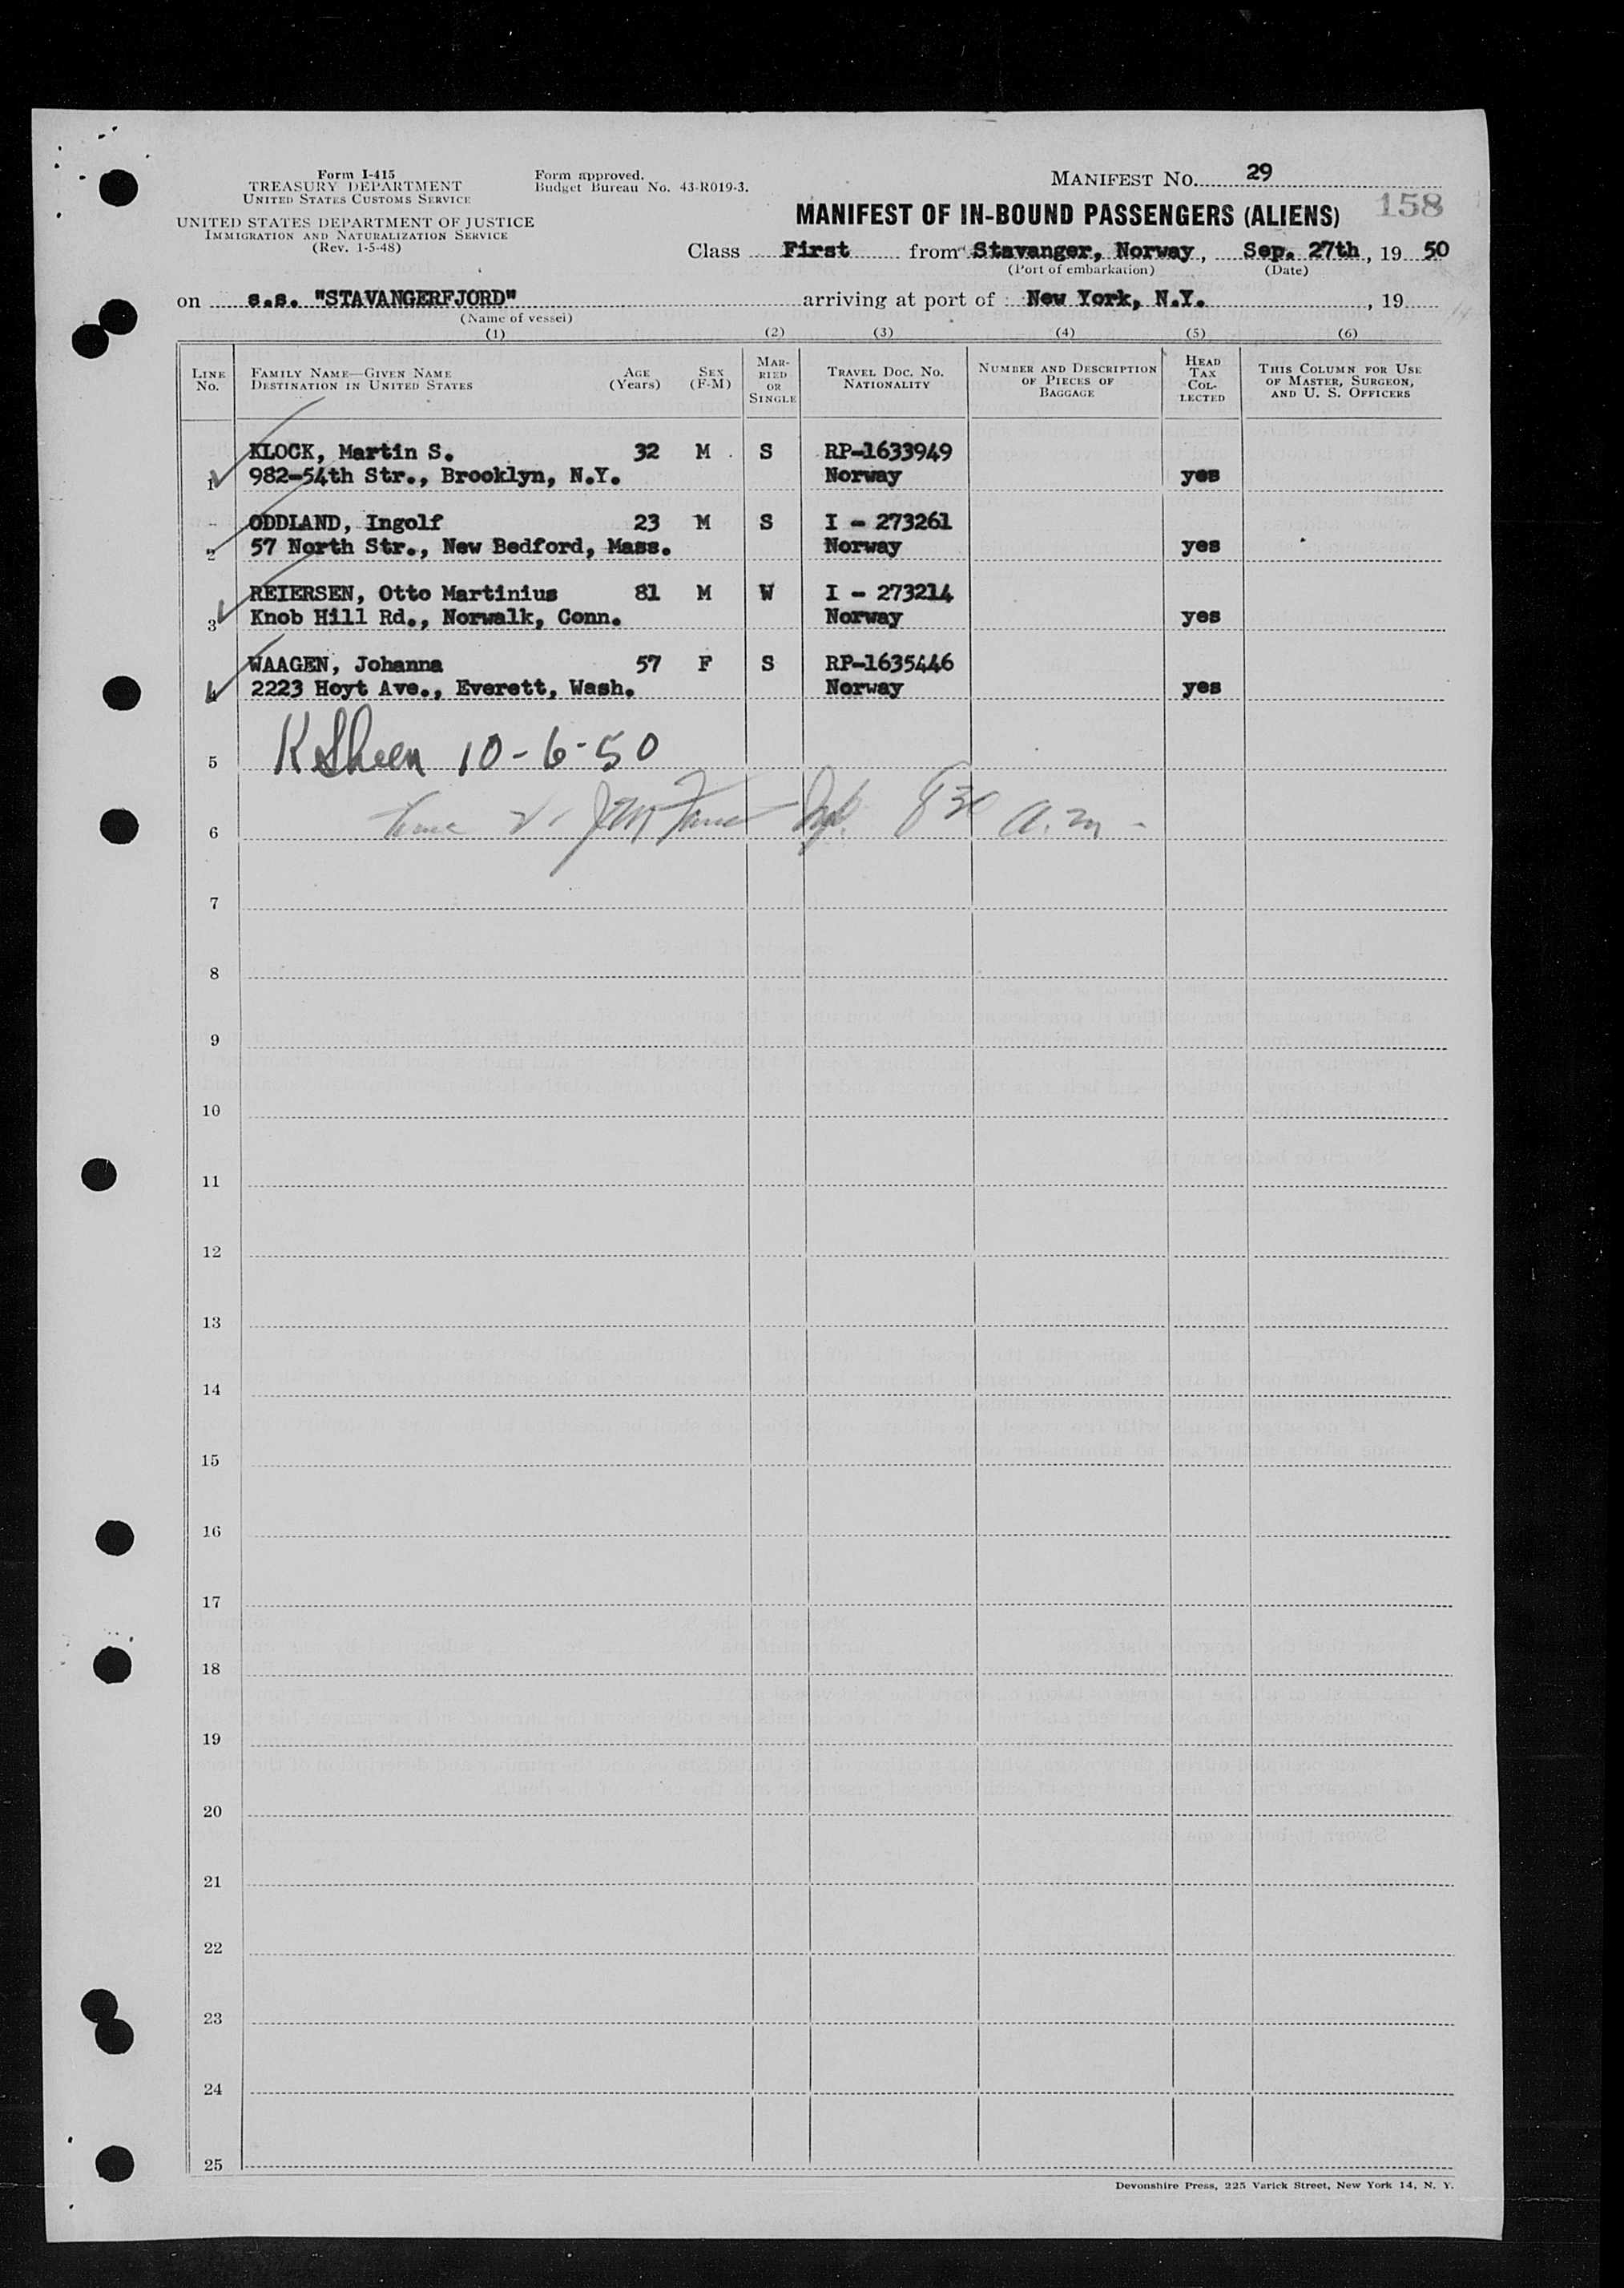 Form I-415
TREASURY DEPARTMENT
UNITED STATES CUSTOMS SERVICE
UNITED STATES DEPARTMENT OF JUSTICE
IMMIGRATION AND NATURALIZATION SERVICE
(Rev. 1-5-48)
Form approved.
Budget Bureau No. 43-R019-3.
MANIFEST NO. 29
MANIFEST OF IN-BOUND PASSENGERS (ALIENS) 158
Class First from Stavanger, Norway, Sep. 27th, 19 50
(Port of embarkation) (Date)
on s.s. "STAVANGERFJORD" arriving at port of New York, N.Y. , 19
(Name of vessel)
(1) (2) (3) (4) (5) (6)
LINE NO. FAMILY NAME—GIVEN NAME DESTINATION IN UNITED STATES AGE (Years) SEX (F-M) MARRIED OR SINGLE TRAVEL DOC. NO. NATIONALITY NUMBER AND DESCRIPTION OF PIECES OF BAGGAGE HEAD TAX COLLECTED THIS COLUMN FOR USE OF MASTER, SURGEON, AND U. S. OFFICERS
KLOCK, Martin S. 32 M S RP-1633949
1 982-54th Str., Brooklyn, N.Y. Norway yes
ODDLAND, Ingolf 23 M S I - 273261
2 57 North Str., New Bedford, Mass. Norway yes
REIERSEN, Otto Martinius 81 M W I - 273214
3 Knob Hill Rd., Norwalk, Conn. Norway yes
WAAGEN, Johanna 57 F S RP-1635446
4 2223 Hoyt Ave., Everett, Wash. Norway yes
5 10-6-50
6 8 30 a.m.
7
8
9
10
11
12
13
14
15
16
17
18
19
20
21
22
23
24
25
Devonshire Press, 225 Varick Street, New York 14, N. Y.